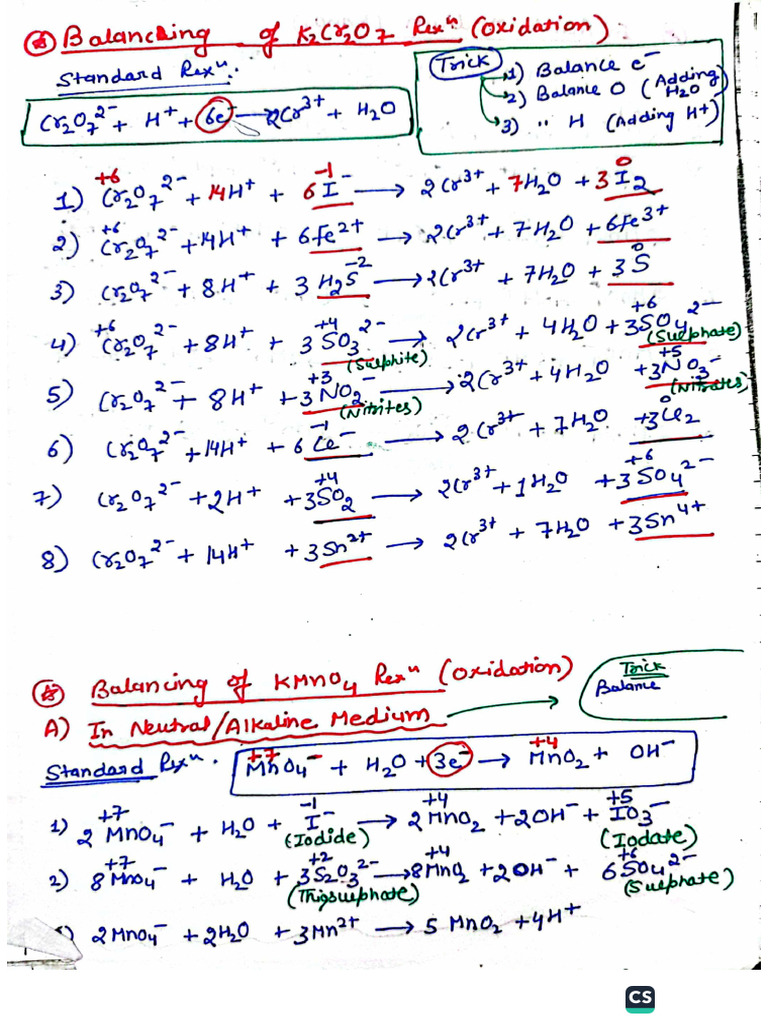 Balancing of K2Cr2O7 Rexⁿ (Oxidation)
Standard Rexⁿ:
Trick
1) Balance e⁻
2) Balance O (Adding H2O)
3) " H (Adding H⁺)
Cr2O7²⁻ + H⁺ + 6e⁻ → 2Cr³⁺ + H2O
+6 -1 0
1) Cr2O7²⁻ + 14H⁺ + 6I⁻ → 2Cr³⁺ + 7H2O + 3I2
+6
2) Cr2O7²⁻ + 14H⁺ + 6Fe²⁺ → 2Cr³⁺ + 7H2O + 6Fe³⁺
-2 0
3) Cr2O7²⁻ + 8H⁺ + 3H2S → 2Cr³⁺ + 7H2O + 3S
+6 +4 +6
4) Cr2O7²⁻ + 8H⁺ + 3SO3²⁻ → 2Cr³⁺ + 4H2O + 3SO4²⁻
(Sulphite) (Sulphate)
+3 +5
5) Cr2O7²⁻ + 8H⁺ + 3NO2⁻ → 2Cr³⁺ + 4H2O + 3NO3⁻
(Nitrites) (Nitrates)
-1 0
6) Cr2O7²⁻ + 14H⁺ + 6Cl⁻ → 2Cr³⁺ + 7H2O + 3Cl2
+4 +6
7) Cr2O7²⁻ + 2H⁺ + 3SO2 → 2Cr³⁺ + 1H2O + 3SO4²⁻
8) Cr2O7²⁻ + 14H⁺ + 3Sn²⁺ → 2Cr³⁺ + 7H2O + 3Sn⁴⁺
Balancing of KMnO4 Rexⁿ (Oxidation)
Trick
Balance
A) In Neutral/Alkaline Medium
Standard Rexⁿ.
+7 +4
MnO4⁻ + H2O + 3e⁻ → MnO2 + OH⁻
+7 -1 +4 +5
1) 2MnO4⁻ + H2O + I⁻ → 2MnO2 + 2OH⁻ + IO3⁻
(Iodide) (Iodate)
+7 +2 +4 +6
2) 8MnO4⁻ + H2O + 3S2O3²⁻ → 8MnO2 + 2OH⁻ + 6SO4²⁻
(Thiosulphate) (Sulphate)
2MnO4⁻ + 2H2O + 3Mn²⁺ → 5MnO2 + 4H⁺
CS